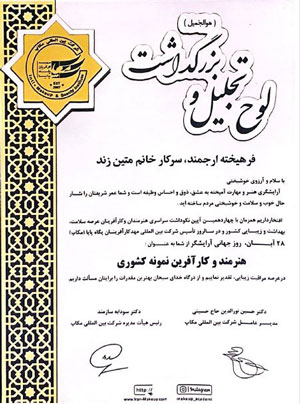 (هوالجمیل)
لوح تجلیل و بزرگداشت
فرهیخته ارجمند، سرکار خانم متین زند
با سلام و آرزوی خوشبختی
آرایشگری هنر و مهارت آمیخته به عشق، ذوق و احساس وظیفه است و شما عمر شریفتان را نثار
حال خوب و سلامت و خوشبختی مردم داده اید.
افتخار داریم همزمان با چهاردهمین آیین نکوداشت سراسری هنرمندان وکارآفرینان عرصه سلامت،
بهداشت و زیبایی کشور و در سالروز تأسیس شرکت بین المللی مهدکارآفرینان پگاه پایا (مکاپ)
۲۸ آبان، روز جهانی آرایشگر از شما به عنوان:
هنرمند و کارآفرین نمونه کشوری
درعرصه مراقبت زیبایی، تقدیر نماییم و از درگاه خدای سبحان بهترین مقدرات را برایتان مسألت داریم.
دکتر حسین نورالدین حاج حسینی
مدیر عامل شرکت بین المللی مکاپ
دکتر سودابه سازمند
رئیس هیأت مدیره شرکت بین المللی مکاپ
http://
www.Iran-Makeup.com
Instagram